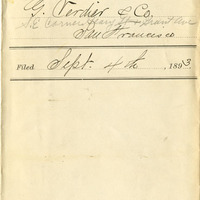 G. Verdier & Co.
S.E. Corner Geary St & Grant Ave
San Francisco
Filed Sept. 4th, 1893.